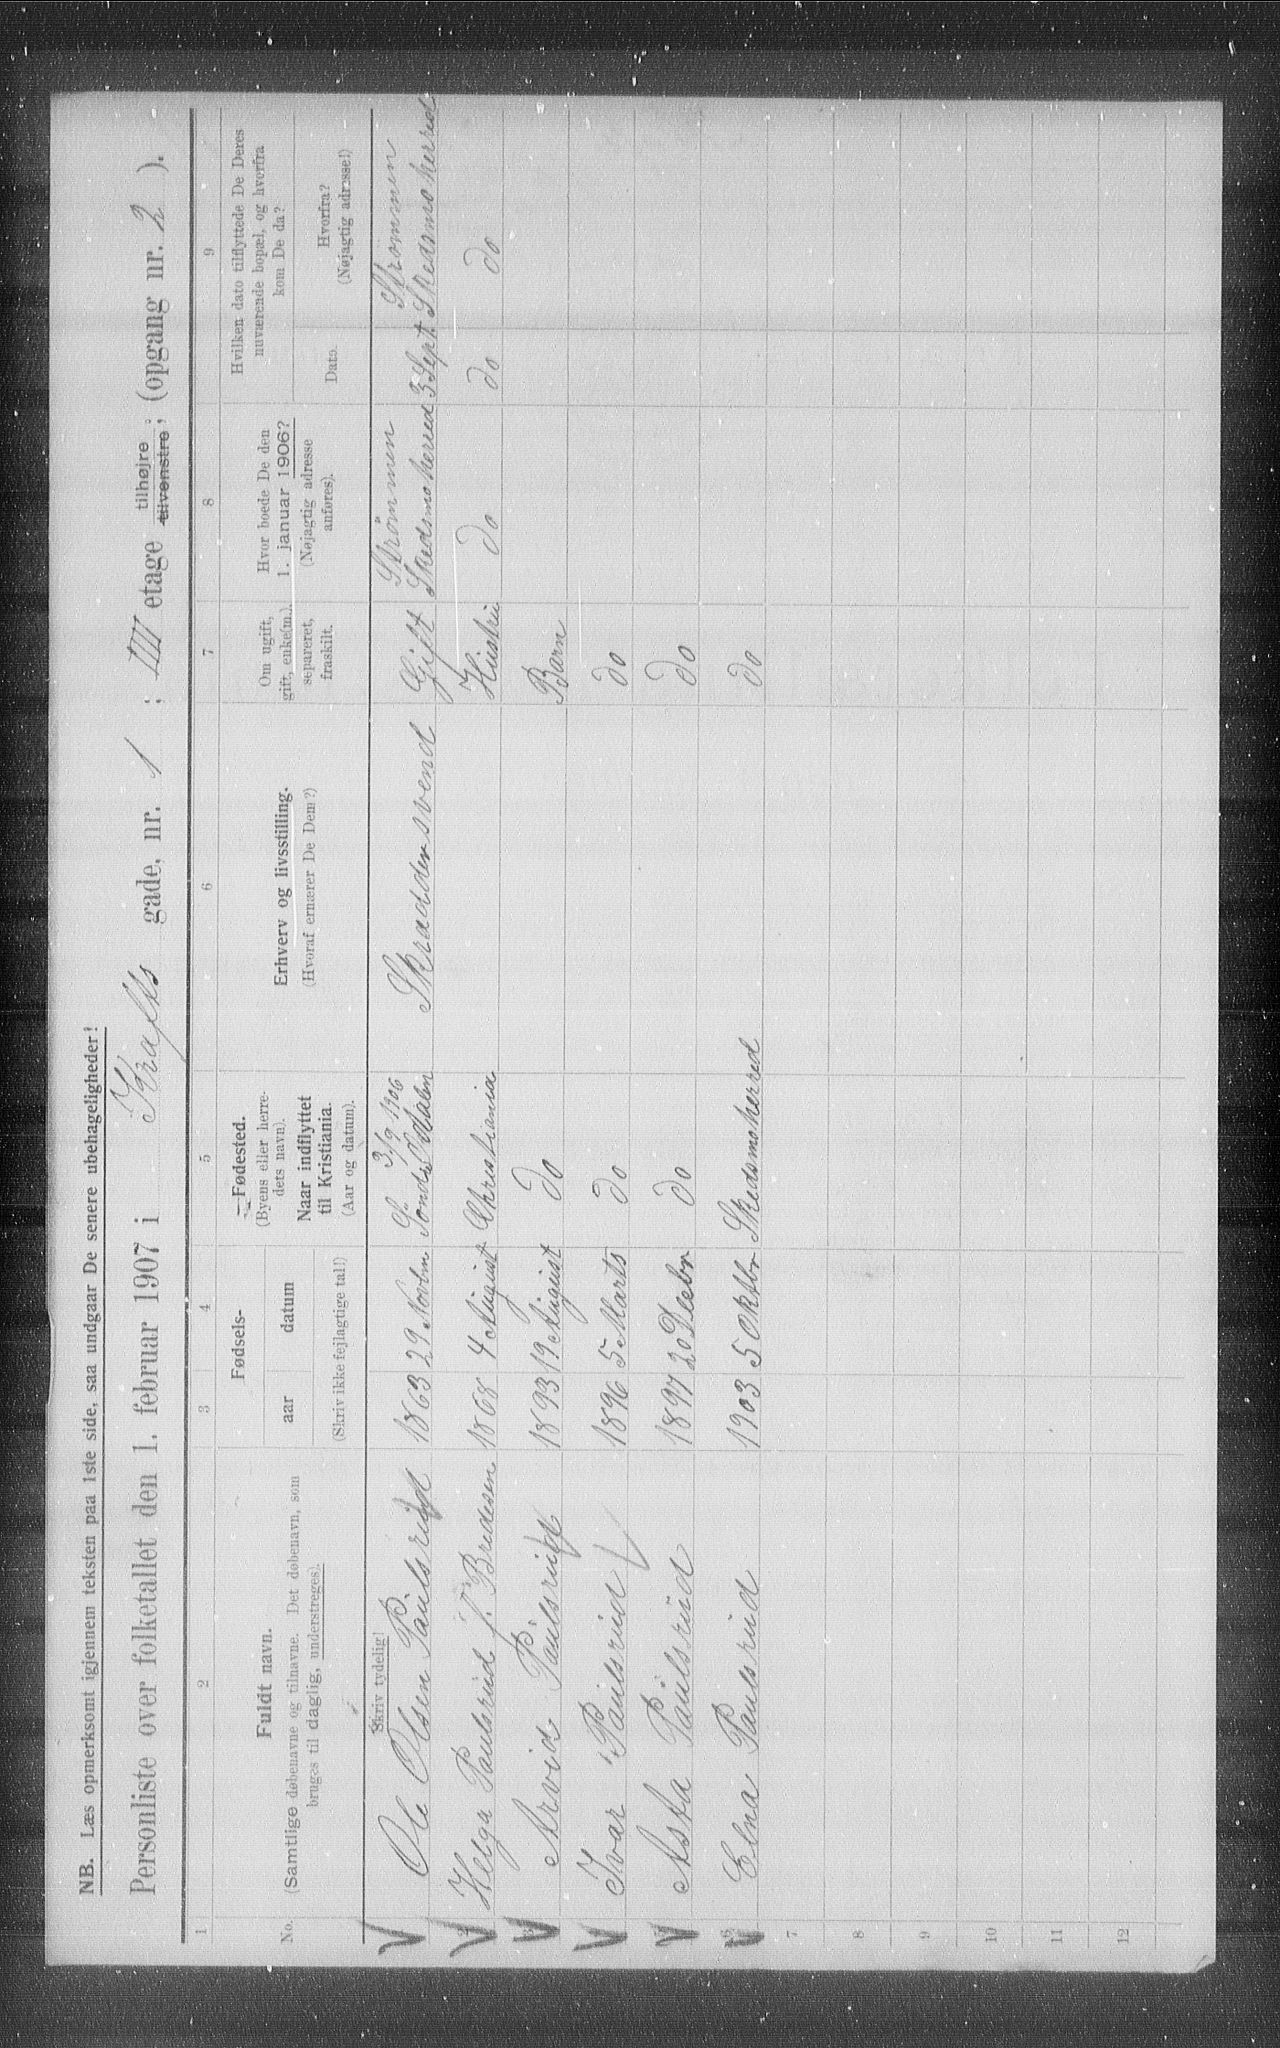 NB. Læs opmerksomt igjennem teksten paa 1ste side, saa undgaar De senere ubehageligheder!
Personliste over folketallet den 1. februar 1907 i Krafts gade, nr. 1 ; IIII etage tilhøjre ; (opgang nr. 2 ).
tilvenstre ;
1 2 3 4 5 6 7 8 9
No.
Fuldt navn.
(Samtlige døbenavne og tilnavne. Det døbenavn, som
bruges til daglig, understreges).
Skriv tydelig!
Fødsels-
aar datum
(Skriv ikke fejlagtige tal!)
Fødested.
(Byens eller herre-
dets navn).
Naar indflyttet
til Kristiania.
(Aar og datum).
Erhverv og livsstilling.
(Hvoraf ernærer De Dem?)
Om ugift,
gift, enke(m.),
separeret,
fraskilt.
Hvor boede De den
1. januar 1906?
(Nøjagtig adresse
anføres).
Hvilken dato tilflyttede De Deres
nuværende bopæl, og hvorfra
kom De da?
Dato.
Hvorfra?
(Nøjagtig adresse!)
3/9 1906 Strømmen Strømmen
Ole Olsen Paulsrud 1863 29 Novbm Søndre Odalen Skraddersvend Gift Skedsmo herred 3 Sept Skedsmo herred
Helga Paulsrud f. Bredesen 1868 4 August Christiania Hustru do do do
Arvid Paulsrud 1893 19 August do Barn
Ivar Paulsrud 1896 5 Marts do do
Asta Paulsrud 1897 20 Decbr do do
6 Elna Paulsrud 1903 5 Oktbr Skedsmoherred do
7
8
9
10
11
12